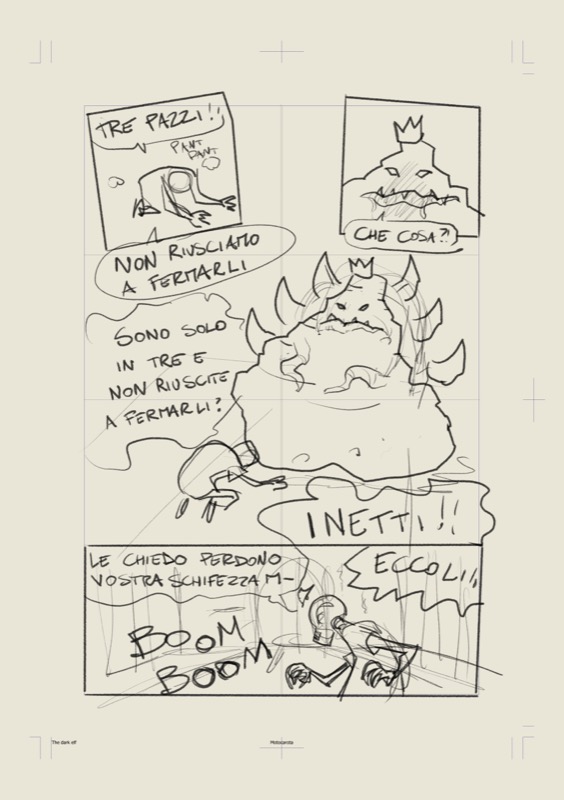 TRE PAZZI!!
PANT
PANT
CHE COSA?!
NON RIUSCIAMO
A FERMARLI
SONO SOLO
IN TRE E
NON RIUSCITE
A FERMARLI?
INETTI!!
LE CHIEDO PERDONO
VOSTRA SCHIFEZZA M-
ECCOLI!!
BOOM
BOOM
The dark elf
Motocarota